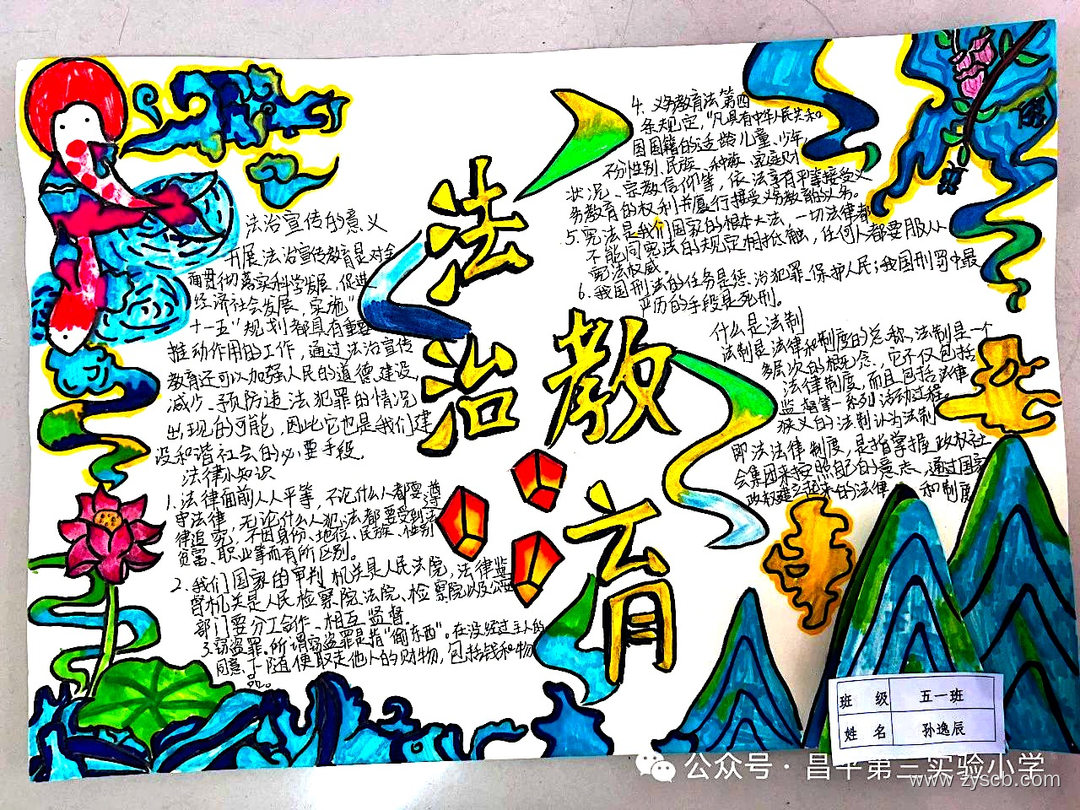 法治教育
法治宣传的意义
开展法治宣传教育是对全
面贯彻落实科学发展、促进
经济社会发展,实施"
十一五"规划都具有重要
推动作用的工作,通过法治宣传
教育还可以加强人民的道德建设,
减少、预防违法犯罪的情况
出现的可能,因此它也是我们建
设和谐社会的必要手段。
法律小知识
1.法律面前人人平等,不论什么人都要遵
守法律,无论什么人犯法都要受到法
律追究,不因身份、地位、民族、性别
贫富、职业等而有所区别。
2.我们国家的审判机关是人民法院,法律监
督机关是人民检察院,法院、检察院以及公安
部门要分工合作、相互监督.
3.窃盗罪,所谓窃盗罪是指"偷东西"。在没经过主人的
同意下随便取走他人的财物,包括钱和物
品。
4.义务教育法第四
条规定,"凡具有中华人民共和
国国籍的适龄儿童、少年,
不分性别、民族、种族、家庭财
状况、宗教信仰等,依法享有平等接受义
务教育的权利并履行接受义务教育的义务。
5.宪法是我们国家的根本大法,一切法律都
不能同宪法的规定相抵触,任何人都要服从
宪法权威。
6.我国刑法的任务是惩治犯罪、保护人民;我国刑罚中最
严历的手段是死刑。
什么是法制
法制是法律和制度的总称,法制是一个
多层次的概念,它不仅包括
法律制度,而且包括法律
监督等一系列活动过程。
狭义的法制认为法制
即法法律制度,是指掌握政权社
会集团来按照自己的意志、通过国家
政权建立起来的法律 和制度
班级 五一班
姓名 孙逸辰
公众号·昌平第三实验小学
www.zyscb.com